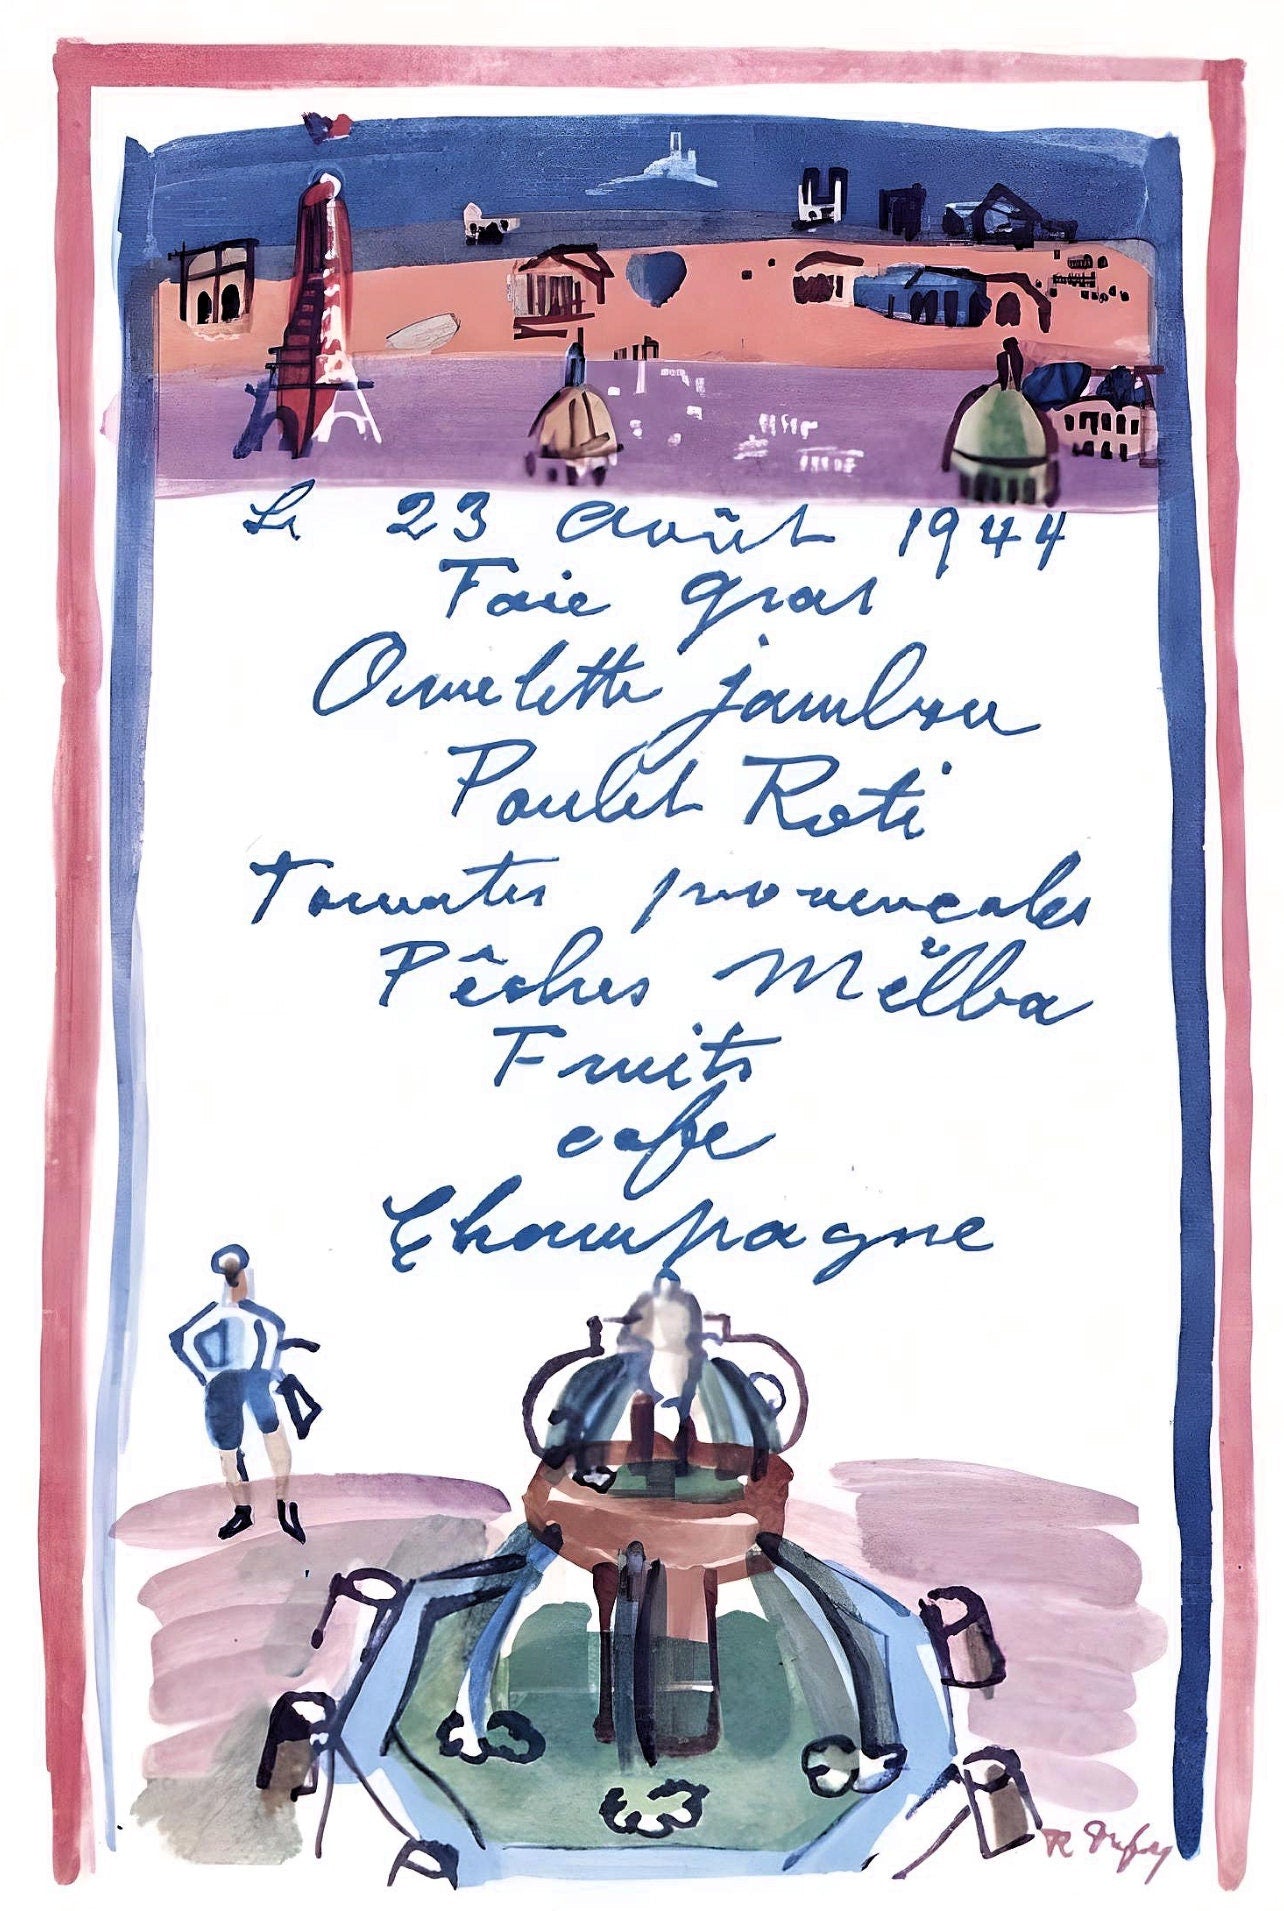 Le 23 Août 1944
Foie gras
Omelette jambon
Poulet Roti
Tomates provencales
Pêches Mělba
Fruits
cafe
Champagne
R Dufy